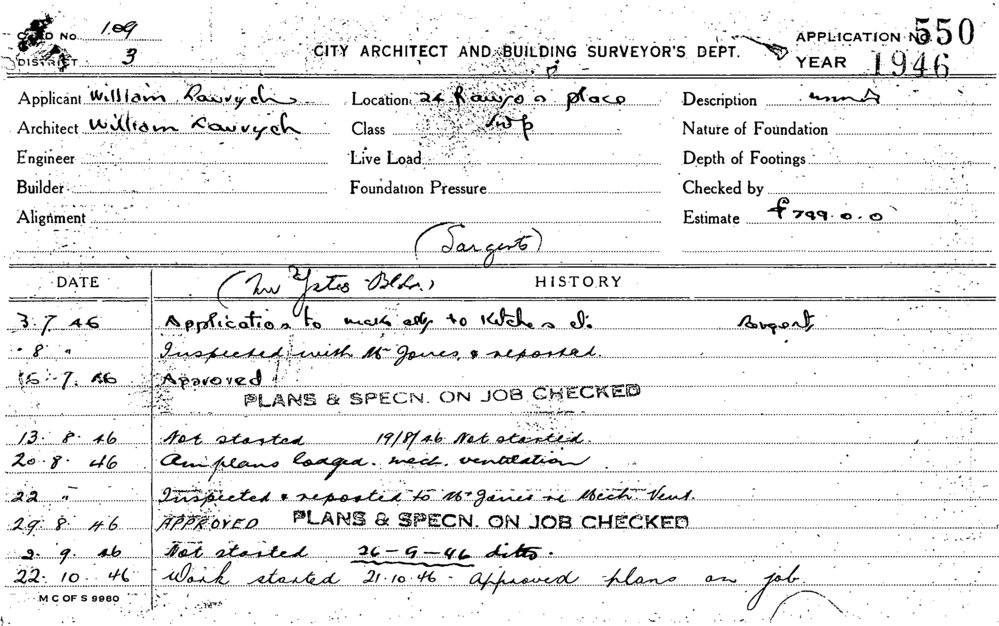 CARD No 109
DISTRICT 3
CITY ARCHITECT AND BUILDING SURVEYOR'S DEPT.
APPLICATION No 550
YEAR 1946
Applicant William
Location 24 place
Description
Architect William
Class
Nature of Foundation
Engineer
Live Load
Depth of Footings
Builder
Foundation Pressure
Checked by
Alignment
Estimate £799.0.0
(Sargents)
DATE
HISTORY
(Mr Yates Bldr.)
3.7.46 Application to make to Kitchen
8 " Inspected with Mr Jones, & reported.
15.7.46 Approved
PLANS & SPECN. ON JOB CHECKED
13.8.46 Not started 19/8/46 Not started.
20.8.46 Am plans lodged. mech. ventilation
22 " Inspected & reported to Mr Jones re Mech Vent.
29.8.46 APPROVED PLANS & SPECN. ON JOB CHECKED
2.9.46 Not started 26-9-46 ditto.
22.10.46 Work started 21.10.46 - approved plans on job
M C OF S 9960